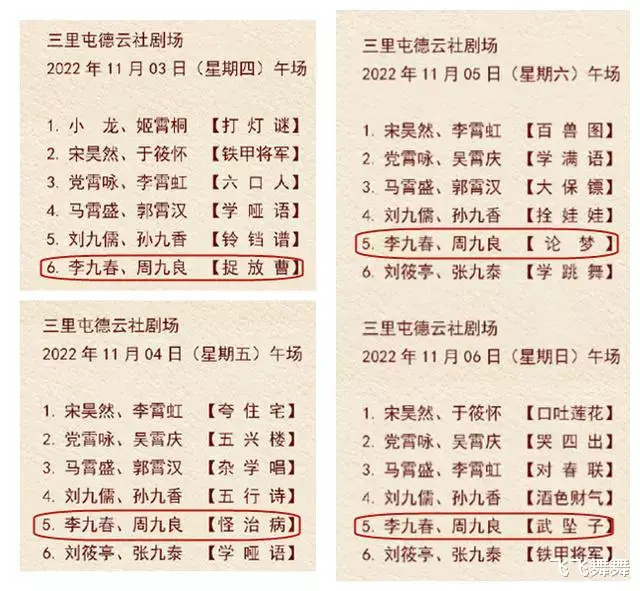 三里屯德云社剧场
2022年11月03日（星期四）午场
1. 小龙、姬霄桐【打灯谜】
2. 宋昊然、于筱怀【铁甲将军】
3. 党霄咏、李霄虹【六口人】
4. 马霄盛、郭霄汉【学哑语】
5. 刘九儒、孙九香【铃铛谱】
6. 李九春、周九良【捉放曹】
三里屯德云社剧场
2022年11月04日（星期五）午场
1. 宋昊然、李霄虹【夸住宅】
2. 党霄咏、吴霄庆【五兴楼】
3. 马霄盛、郭霄汉【杂学唱】
4. 刘九儒、孙九香【五行诗】
5. 李九春、周九良【怪治病】
6. 刘筱亭、张九泰【学哑语】
三里屯德云社剧场
2022年11月05日（星期六）午场
1. 宋昊然、李霄虹【百兽图】
2. 党霄咏、吴霄庆【学满语】
3. 马霄盛、郭霄汉【大保镖】
4. 刘九儒、孙九香【拴娃娃】
5. 李九春、周九良【论梦】
6. 刘筱亭、张九泰【学跳舞】
三里屯德云社剧场
2022年11月06日（星期日）午场
1. 宋昊然、于筱怀【口吐莲花】
2. 党霄咏、吴霄庆【哭四出】
3. 马霄盛、李霄虹【对春联】
4. 刘九儒、孙九香【酒色财气】
5. 李九春、周九良【武坠子】
6. 刘筱亭、张九泰【铁甲将军】
飞飞舞舞